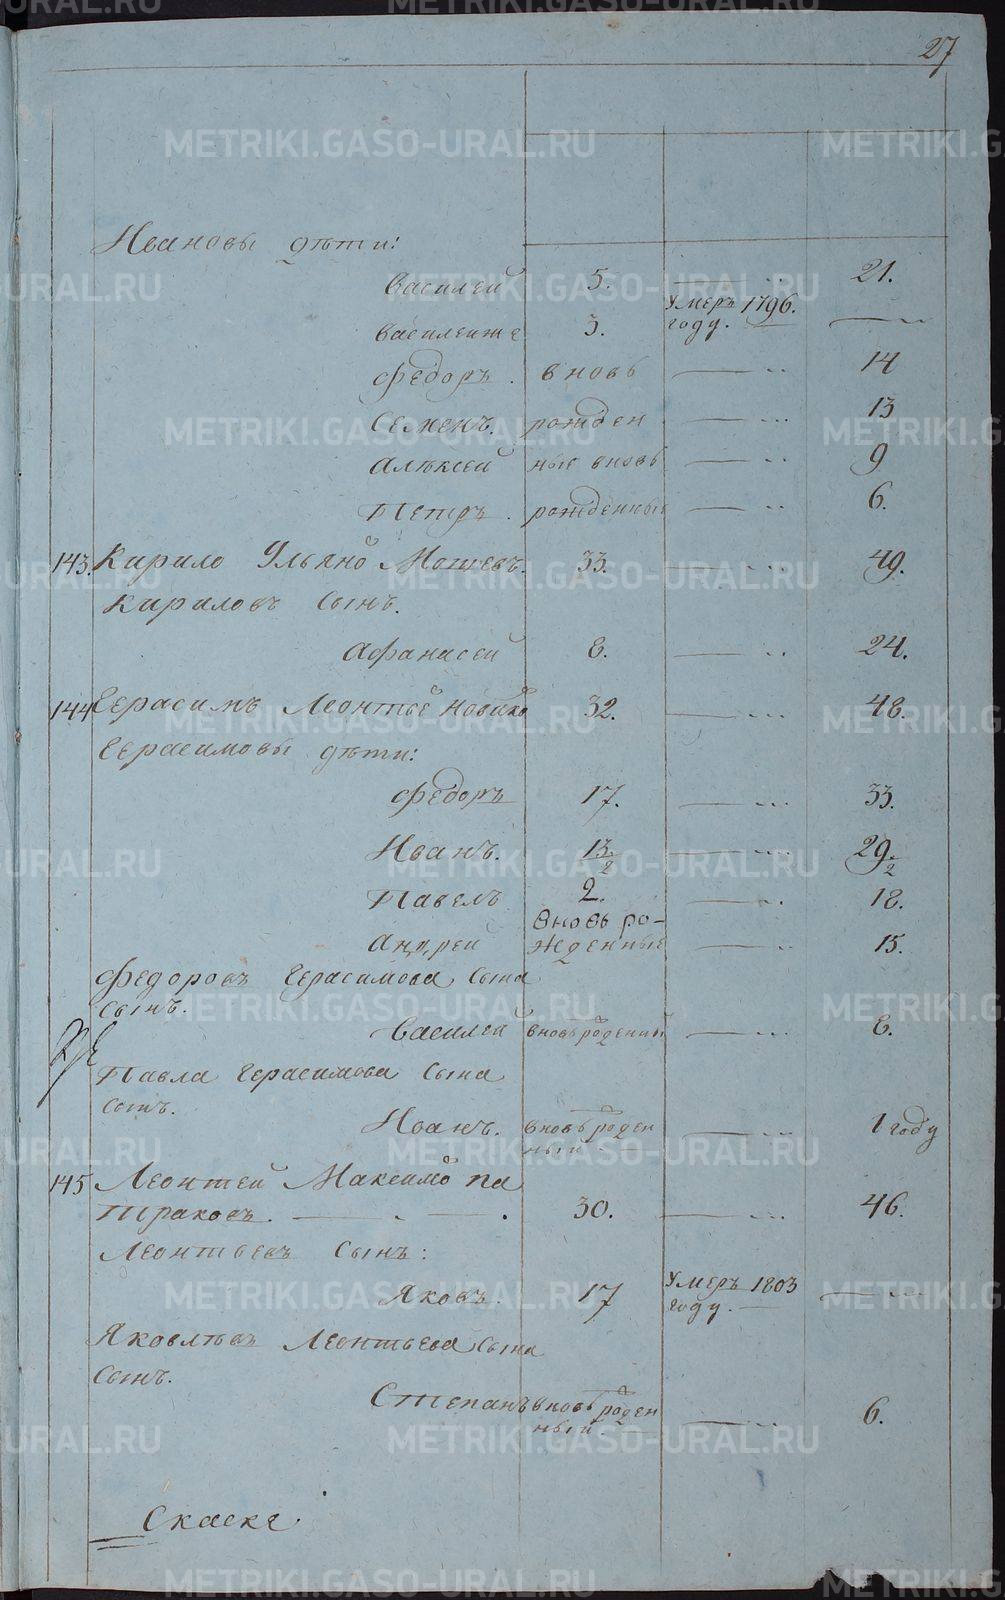 27
Ивановы дѣти:
Василей 5. 21.
Василей же 3. Умеръ 1796. году.
Федоръ. вновь 14
Семенъ. рожден 13
Алѣксей ные вновь 9
Петръ. рожденные 6.
143. Кирило Ульяно Мошевъ. 33. 49.
Кириловъ Сынъ.
Афанасей 8. 24.
144 Герасимъ Леонтье Новико 32. 48.
Герасимовы дѣти:
Федоръ 17. 33.
Иванъ. 13/2 29/2
Павелъ 2. 18.
Андрей вновь ро-жденные 15.
Федоровъ Герасимова Сына
Сынъ.
Василей вновь роденый 8.
Павла Герасимова Сына
Сынъ.
Иванъ. вновь роден ный 1 году
145 Леонтей Максимо Па
траковъ. 30. 46.
Леонтьевъ Сынъ:
Яковъ. 17 Умеръ 1803 году.
Яковлѣвъ Леонтьева Сына
Сынъ.
Степанъ вновь роден ный. 6.
Скаске
METRIKI.GASO-URAL.RU